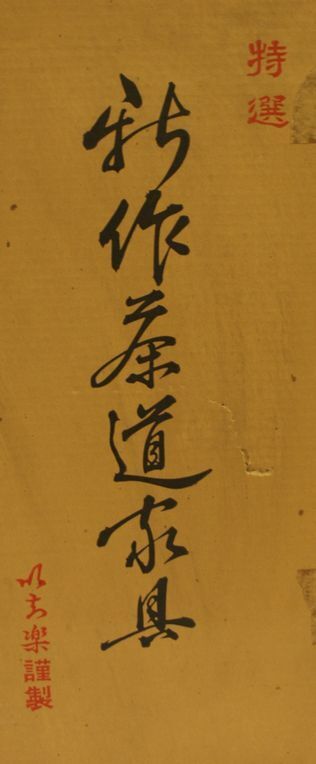 特選
新作茶道家具
以知楽謹製